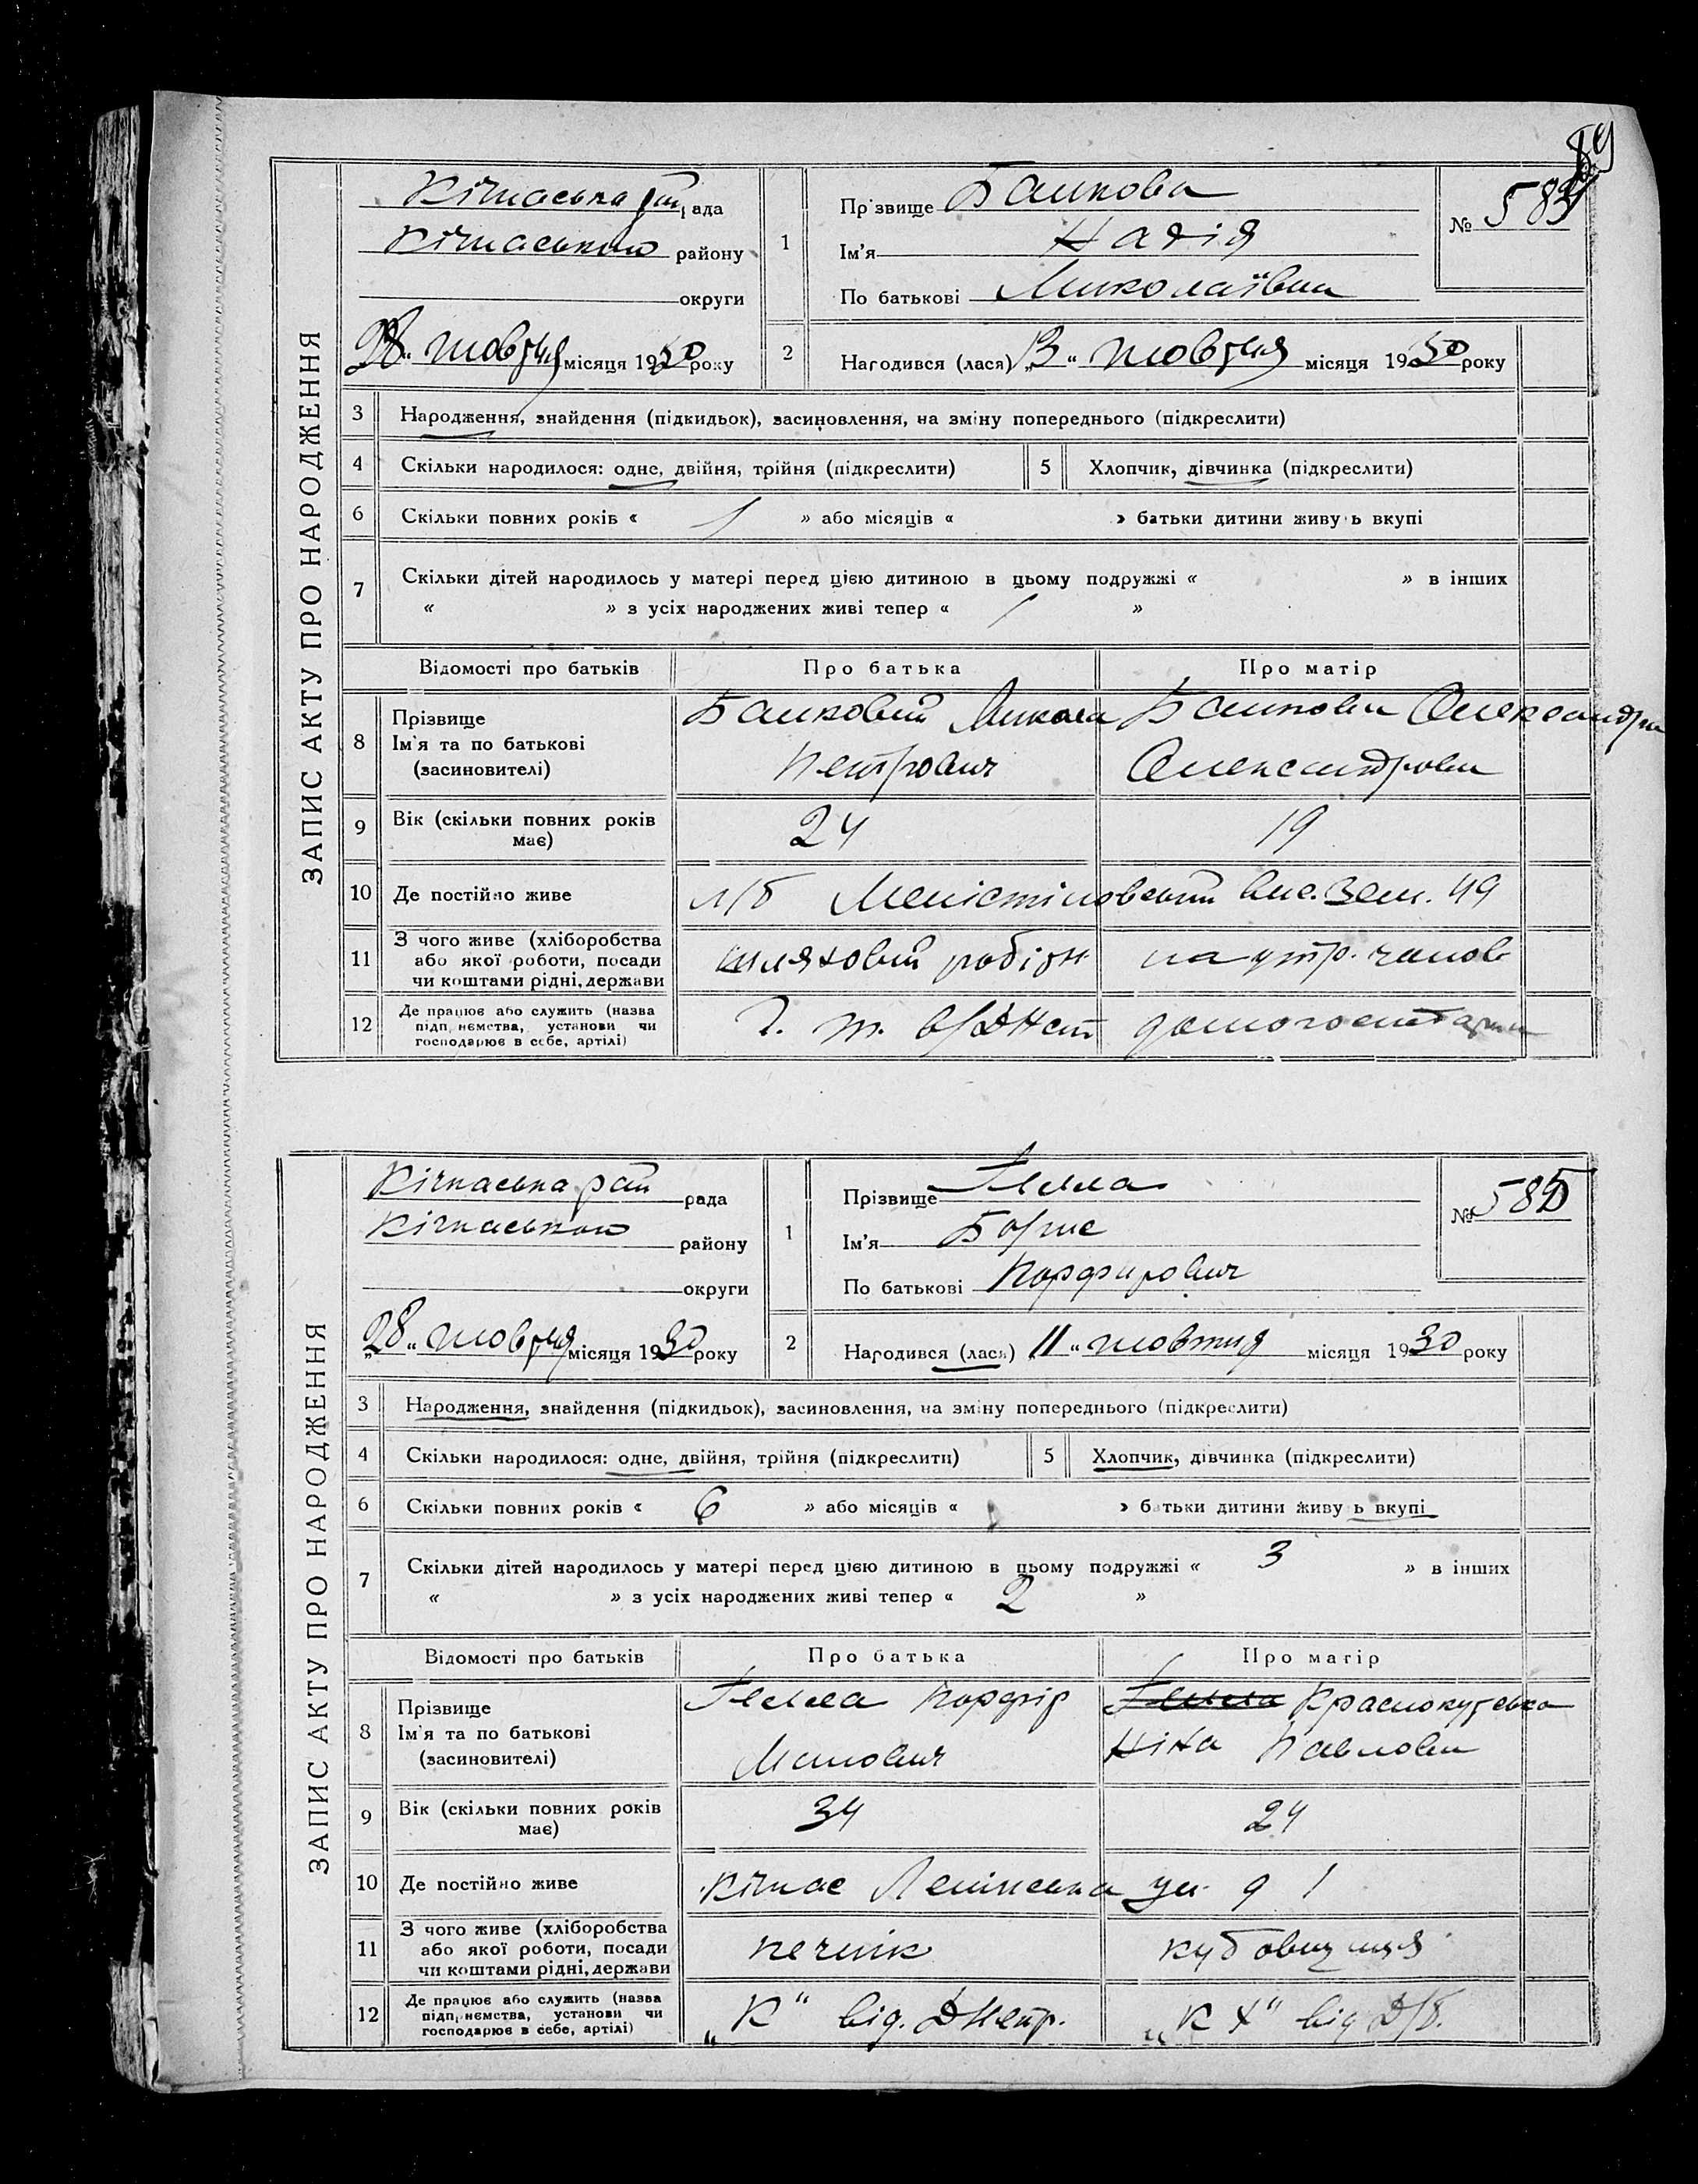 89
ЗАПИС АКТУ ПРО НАРОДЖЕННЯ
Кічкаська рай рада
Кічкаського району
округи
28 „ жовтня місяця 1930 року
1
Прізвище Банкова
Ім'я Надія
По батькові Миколаївна
№ 584
2
Народився (лася) „13 " жовтня місяця 1930 року
3 Народження, знайдення (підкидьок), засиновлення, на зміну попереднього (підкреслити)
4 Скільки народилося: одне, двійня, трійня (підкреслити)
5 Хлопчик, дівчинка (підкреслити)
6 Скільки повних років « 1 » або місяців « » батьки дитини живуть вкупі
7 Скільки дітей народилось у матері перед цією дитиною в цьому подружжі « » в інших
« » з усіх народжених живі тепер « »
Відомості про батьків Про батька Про матір
8 Прізвище
Ім'я та по батькові
(засиновителі)
Банковий Микола
Петрович
Банкова Олександра
Олександровна
9 Вік (скільки повних років має) 24 19
10 Де постійно живе л/б вис. Зем. 49
11 З чого живе (хліборобства або якої роботи, посади чи коштами рідні, держави шляховий робітн. на утр. чолов
12 Де працює або служить (назва підприємства, установи чи господарює в себе, артілі) домогосподарка
ЗАПИС АКТУ ПРО НАРОДЖЕННЯ
Кічкаська рай рада
Кічкаського району
округи
„28 " жовтня місяця 1930 року
1
Прізвище
Ім'я Борис
По батькові Порфирович
№ 585
2
Народився (лася) „11 " жовтня місяця 1930 року
3 Народження, знайдення (підкидьок), засиновлення, на зміну попереднього (підкреслити)
4 Скільки народилося: одне, двійня, трійня (підкреслити)
5 Хлопчик, дівчинка (підкреслити)
6 Скільки повних років « 6 » або місяців « » батьки дитини живуть вкупі
7 Скільки дітей народилось у матері перед цією дитиною в цьому подружжі « 3 » в інших
« » з усіх народжених живі тепер « 2 »
Відомості про батьків Про батька Про матір
8 Прізвище
Ім'я та по батькові
(засиновителі)
Порфір
Краснокутська
Ніна Павловна
9 Вік (скільки повних років має) 34 24
10 Де постійно живе Кічкас Ленінська ул. 9 1
11 З чого живе (хліборобства або якої роботи, посади чи коштами рідні, держави печнік кубовщиця
12 Де працює або служить (назва підприємства, установи чи господарює в себе, артілі) „К" від. Днепр. „КХ" від Д/б.